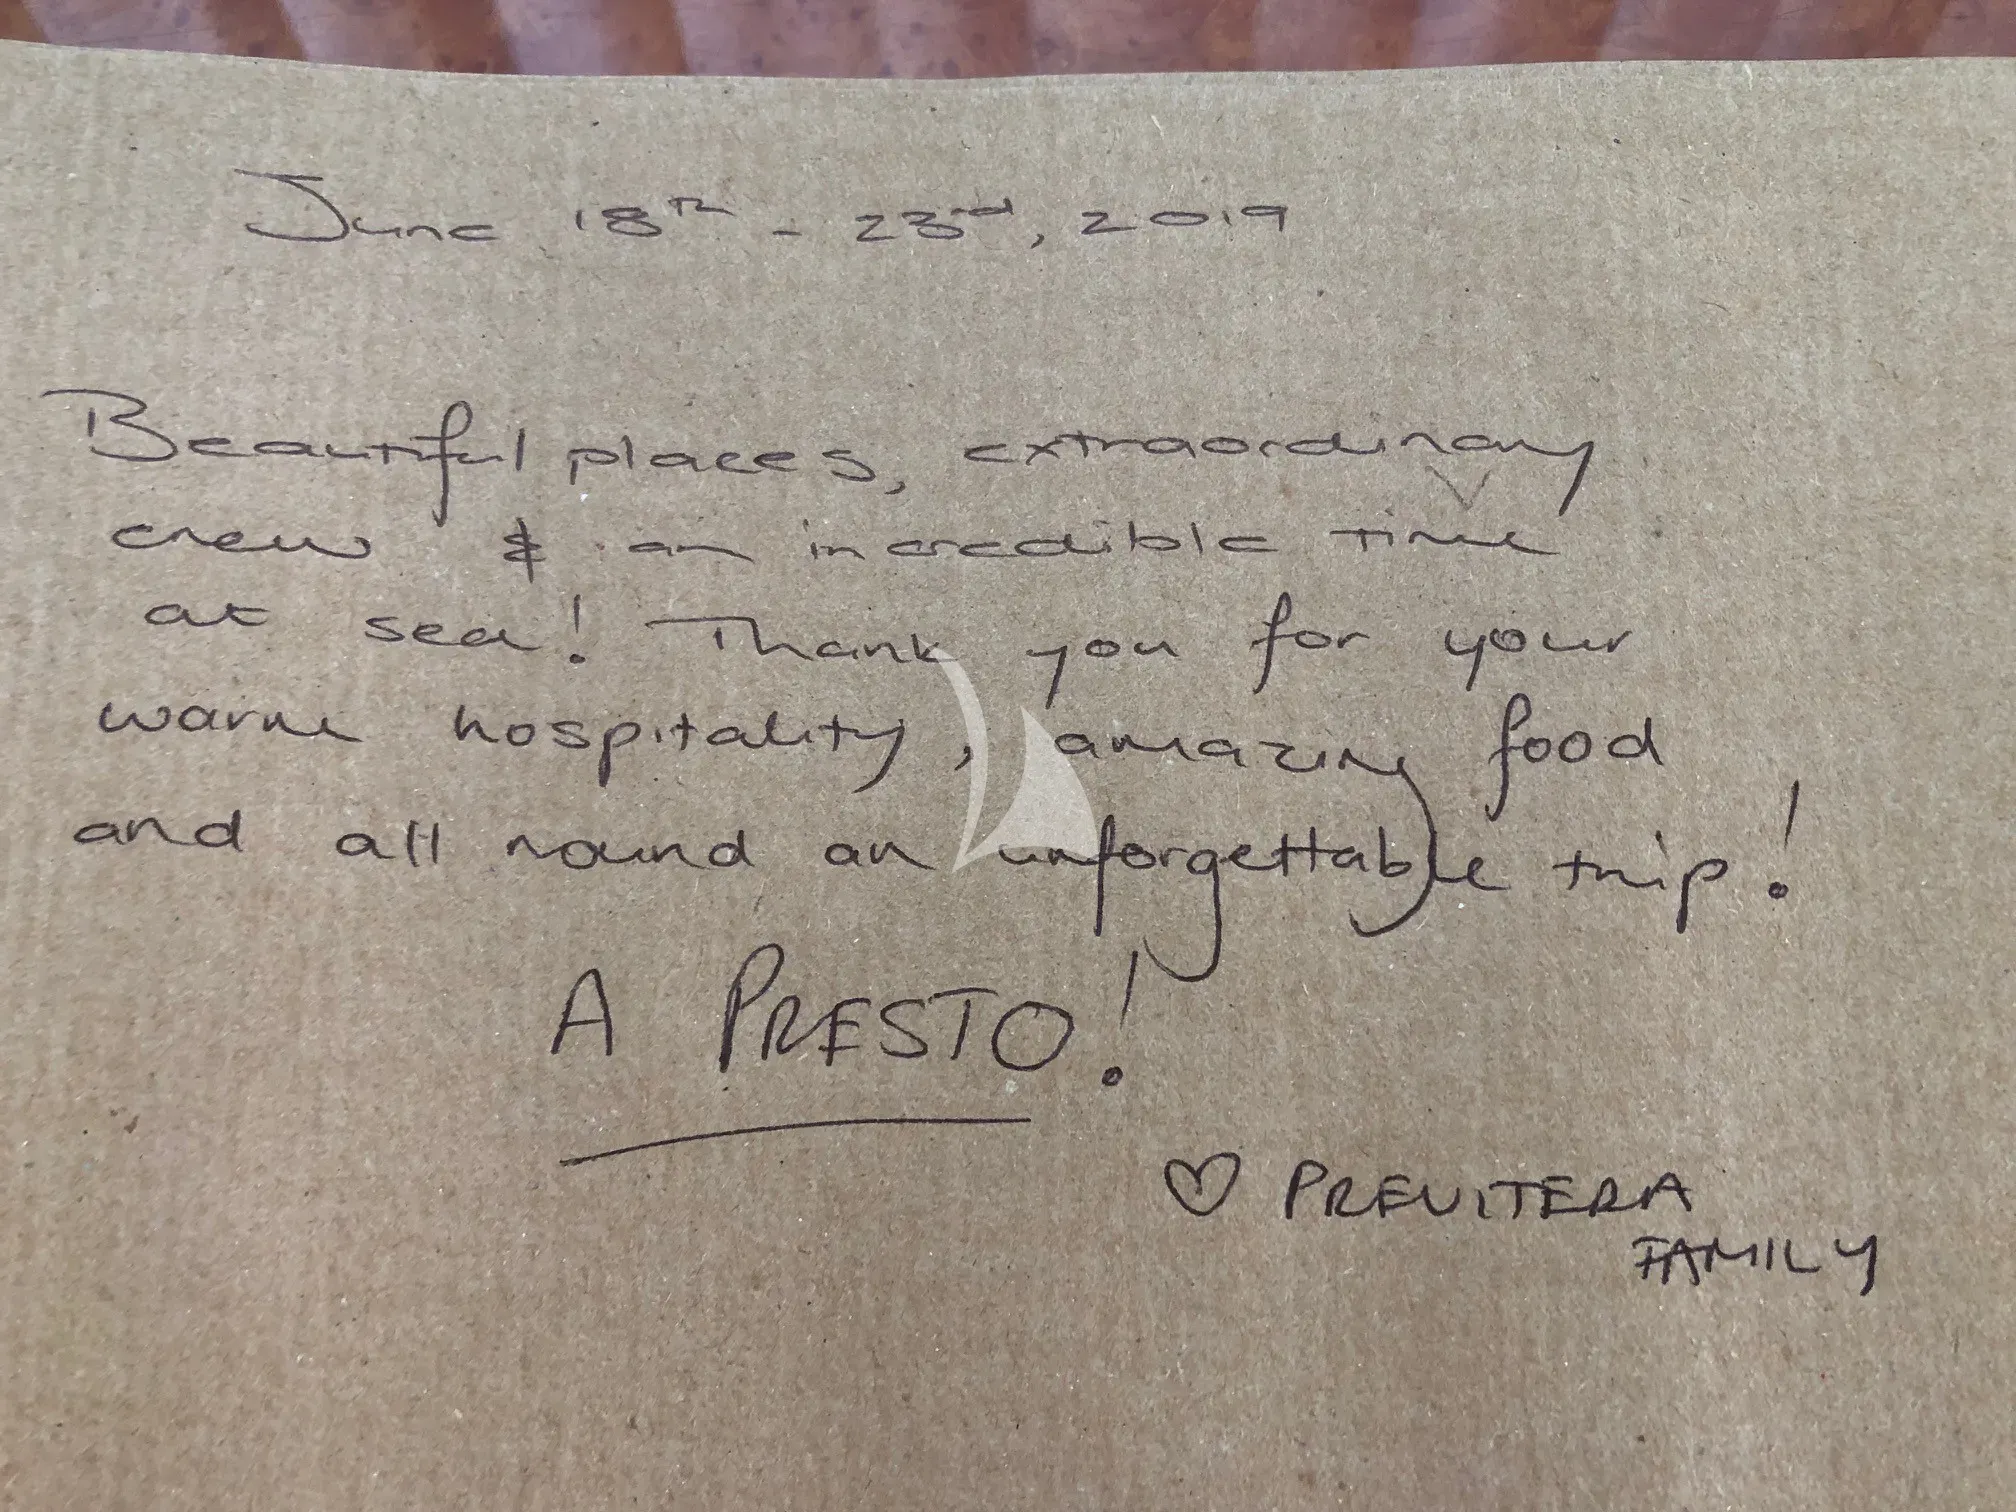 June 18th - 23rd, 2019
Beautiful places, extraordinary
crew & an incredible time
at sea! Thank you for your
warm hospitality, amazing food
and all round an unforgettable trip!
A PRESTO!
♡ PREVITERA
FAMILY